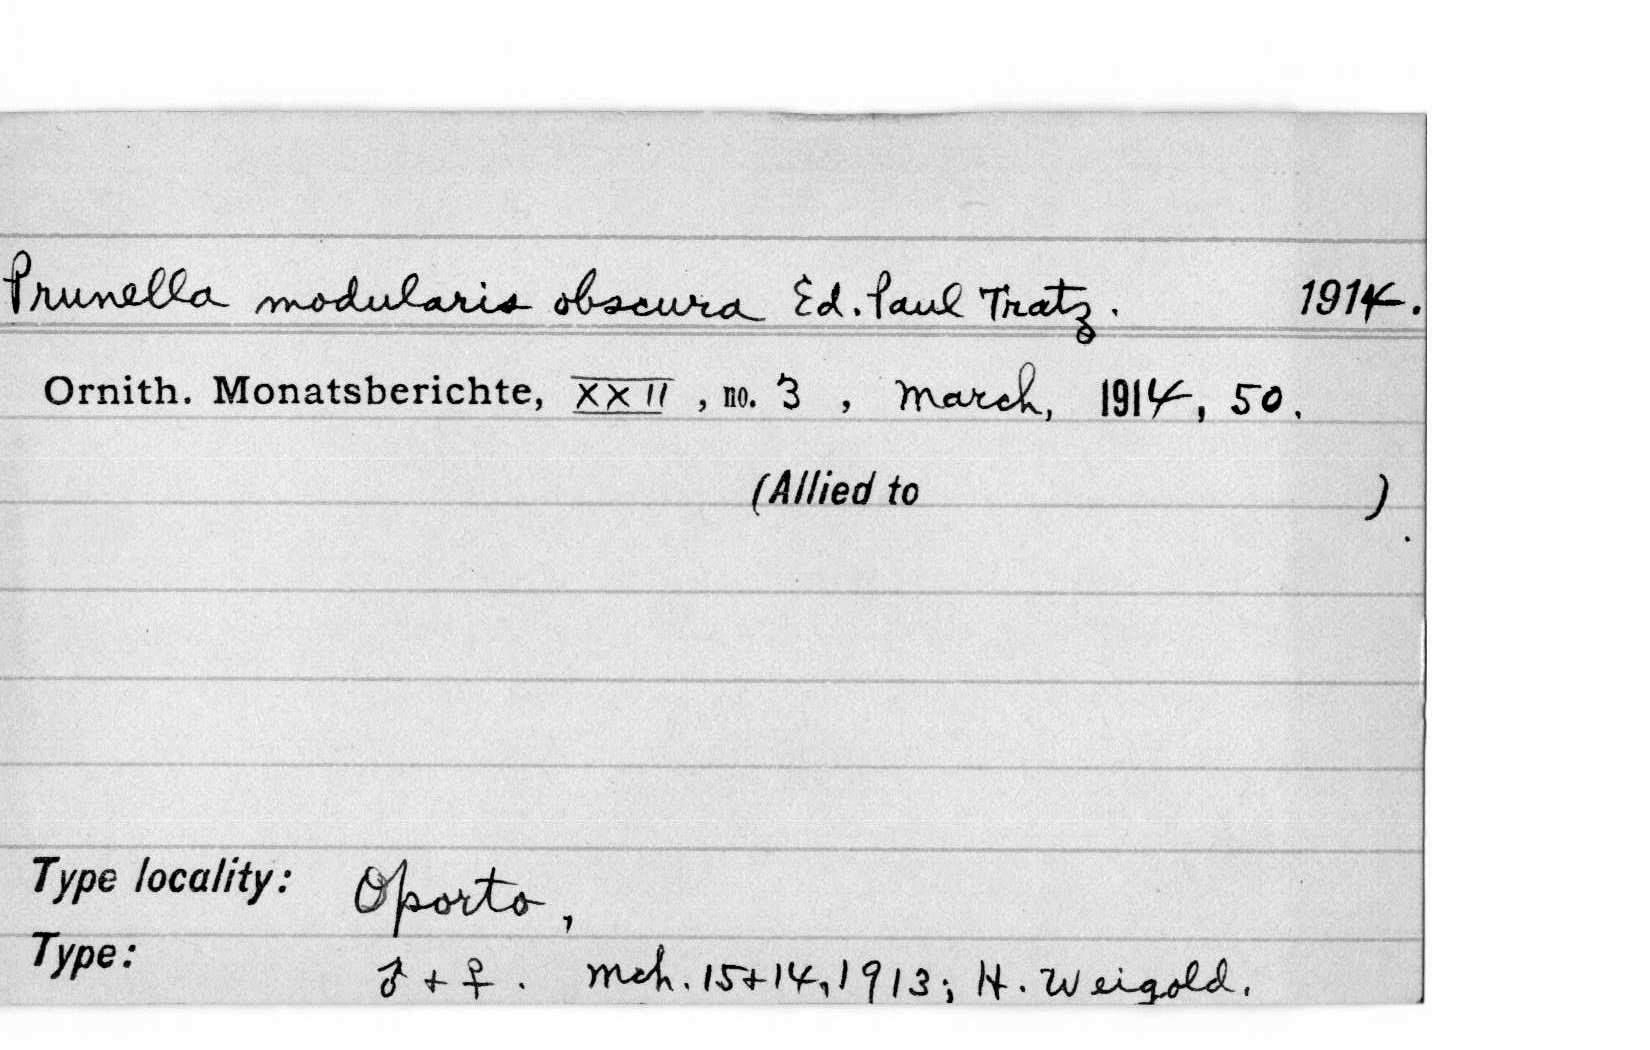 Prunella modularis obscura Ed. Paul Tratz. 1914.
Ornith. Monatsberichte, XXII, no. 3, March, 1914, 50.
(Allied to )
.
Type locality: Oporto,
Type: ♂ + ♀. Mch. 15+14, 1913; H. Weigold.